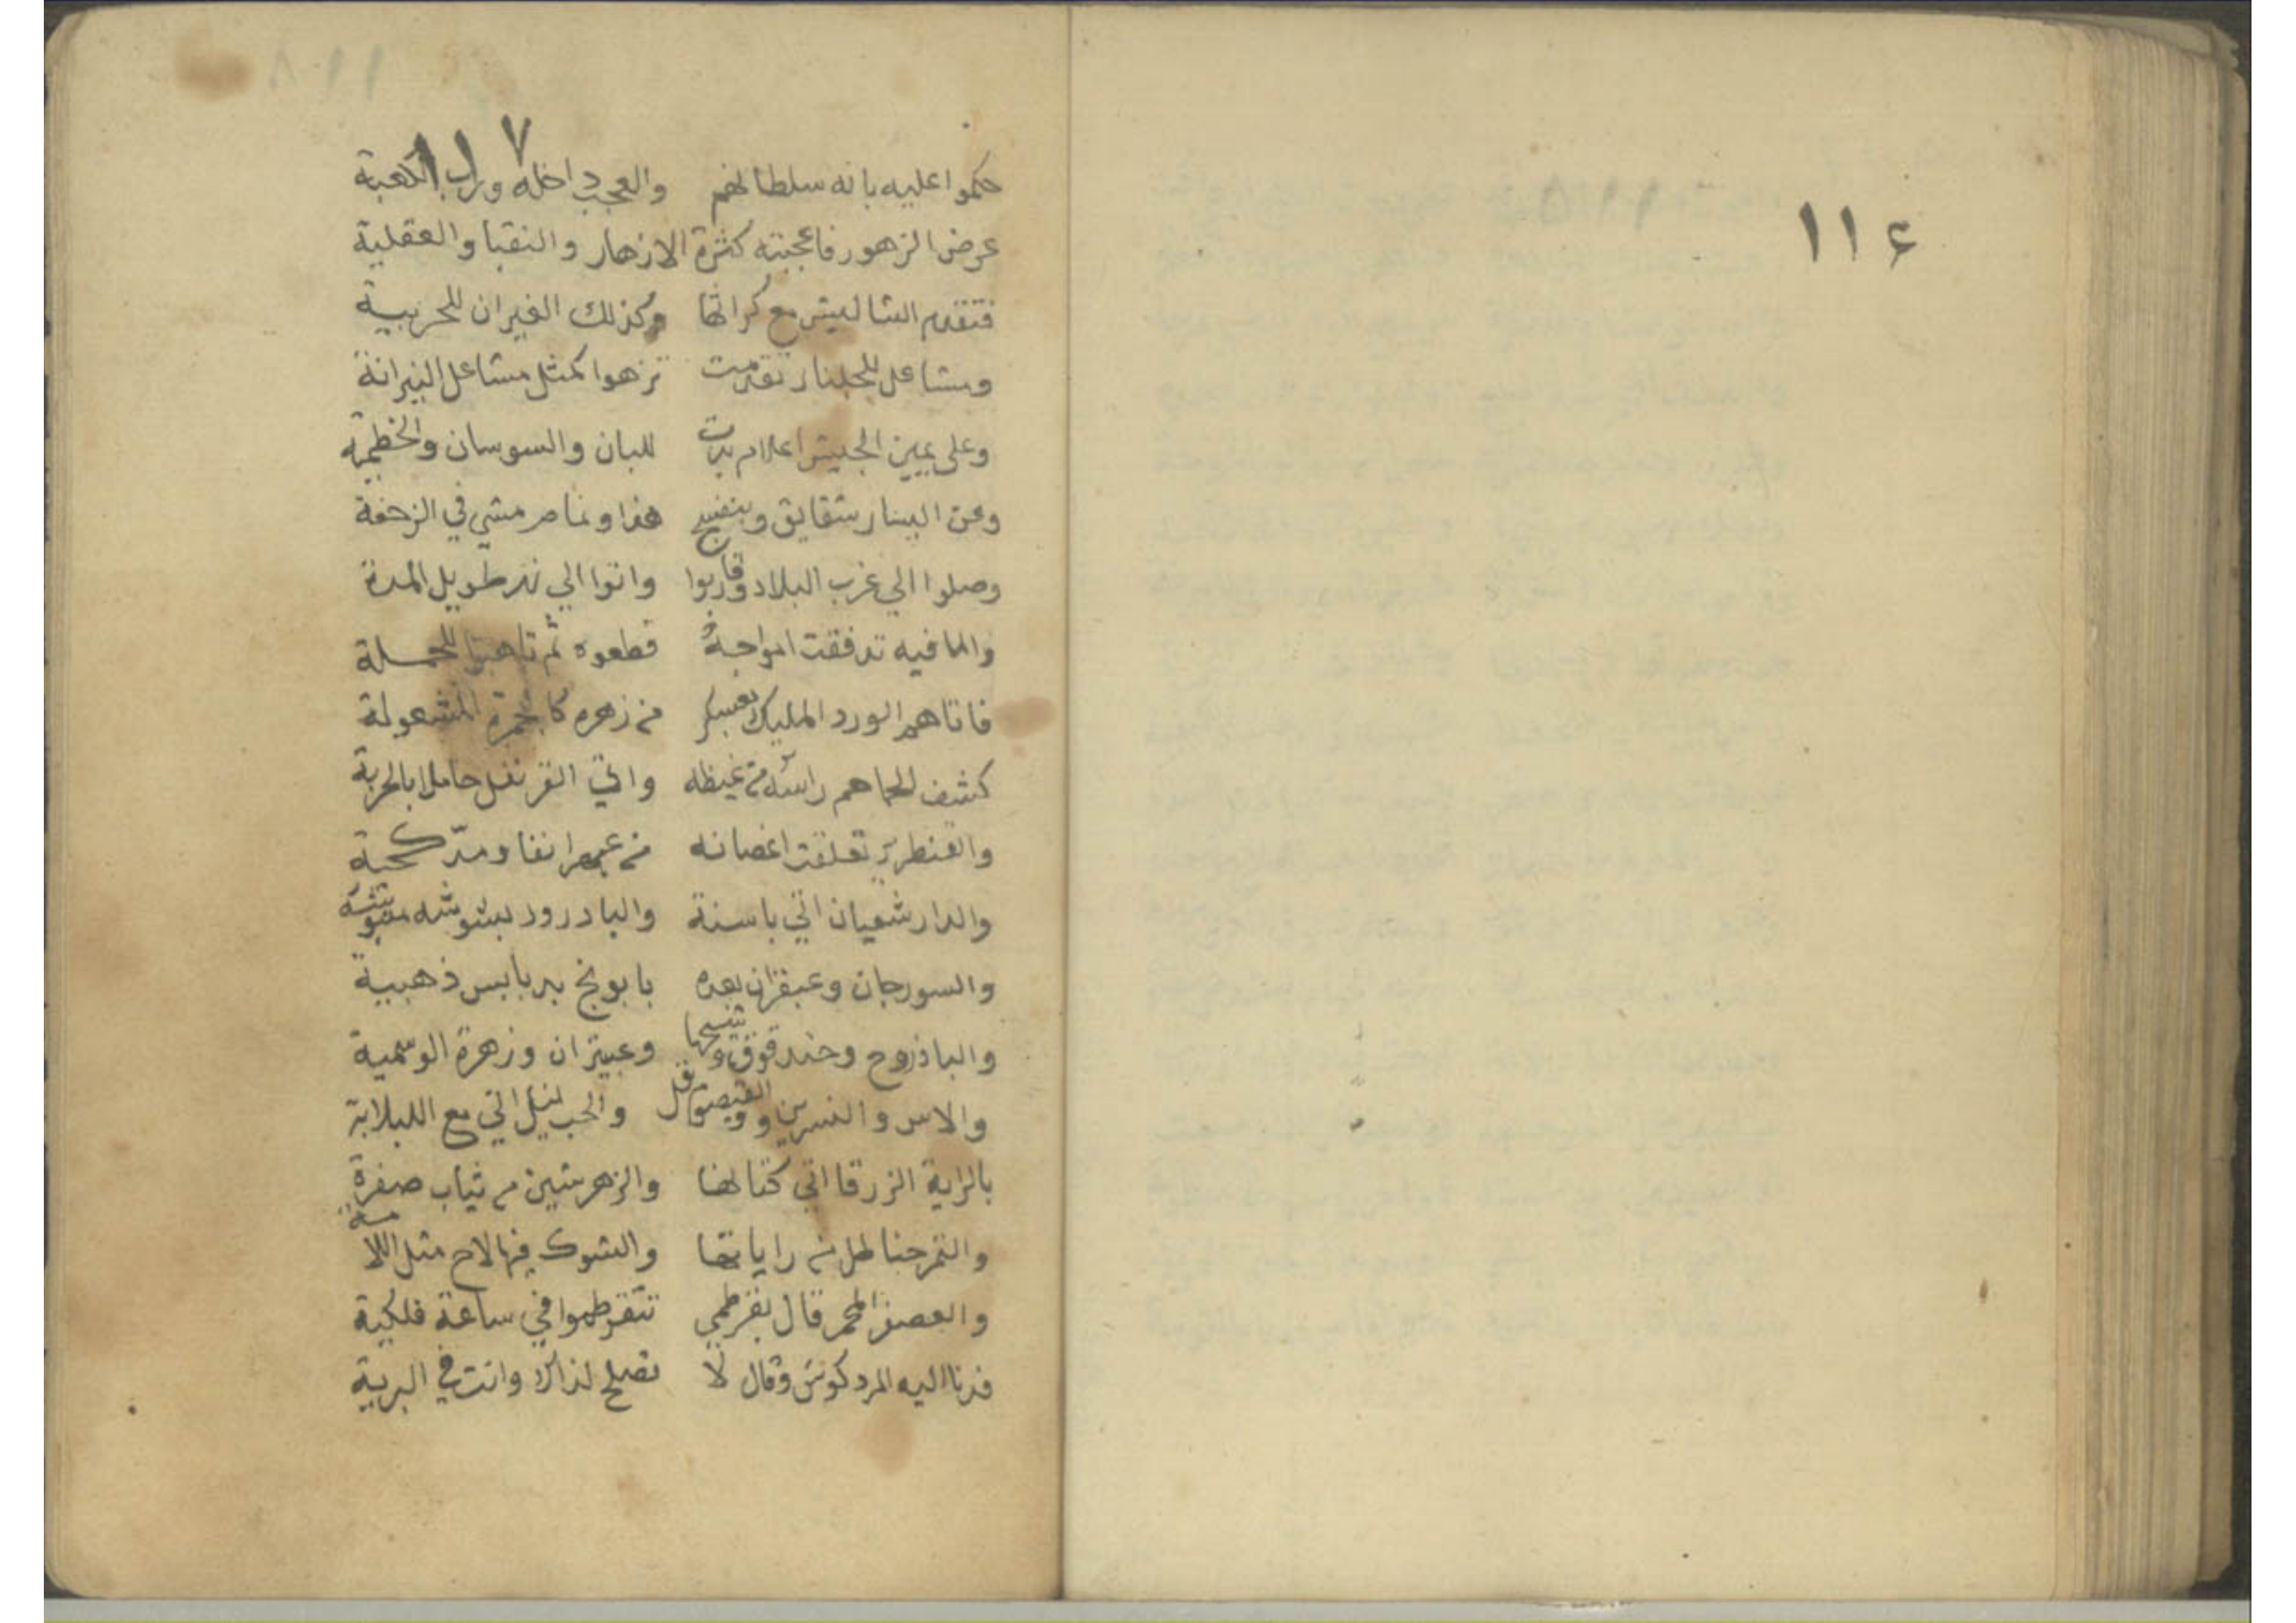 ١١٤
١١٧
حكموا عليه بانه سلطانهم والعجب داخله وراب الكعبة
عرض الزهور فاعجبته كثرة الازهار والنقبا والعقلية
فتقدم الشاليش مع كراتها وكذلك الغيران للحزبية
ومشاعل للجلنار تقدمت تزهوا كمثل مشاعل النيرانة
وعلى يمين الجيش اعلام بدت للبان والسوسان والخطمية
وعن اليسار شقايق وبنفسج هذا ونمام مشي في الزحفة
وصلوا الي غرب البلاد وقاربوا واتوا الي نهر طويل المدة
والما فيه تدفقت امواجهُ قطعوه ثم تاهبوا للحملة
فاتاهم الورد المليك بعسكر من زهره كالجمرة المشعولة
كشف لحماهم راسه من غيظه واتي القرنفل حاملا بالحربة
والقنطريز تعلقت اغصانه من
والدارشعيان اتي باسنة والبادرود ببشوشه
والسورجان وعبقران بعده بابونج بدبابيس ذهبية
والباذروج وحندقوق وعبيتران وزهرة الوسمية
والاس والنسرين والقيصوم والحب لنيل اتي مع اللبلابة
بالراية الزرقا اتي كتانها والزهر شين من ثياب صفرة
والتمرحنا لهل من راياتها والشوك فيها لاح مثل اللا
والعصفر المحمر قال بقرطمي تتقرطموا في ساعة فلكية
فدنا اليه المردكوش وقال لا تصلح لذاك وانت في البرية